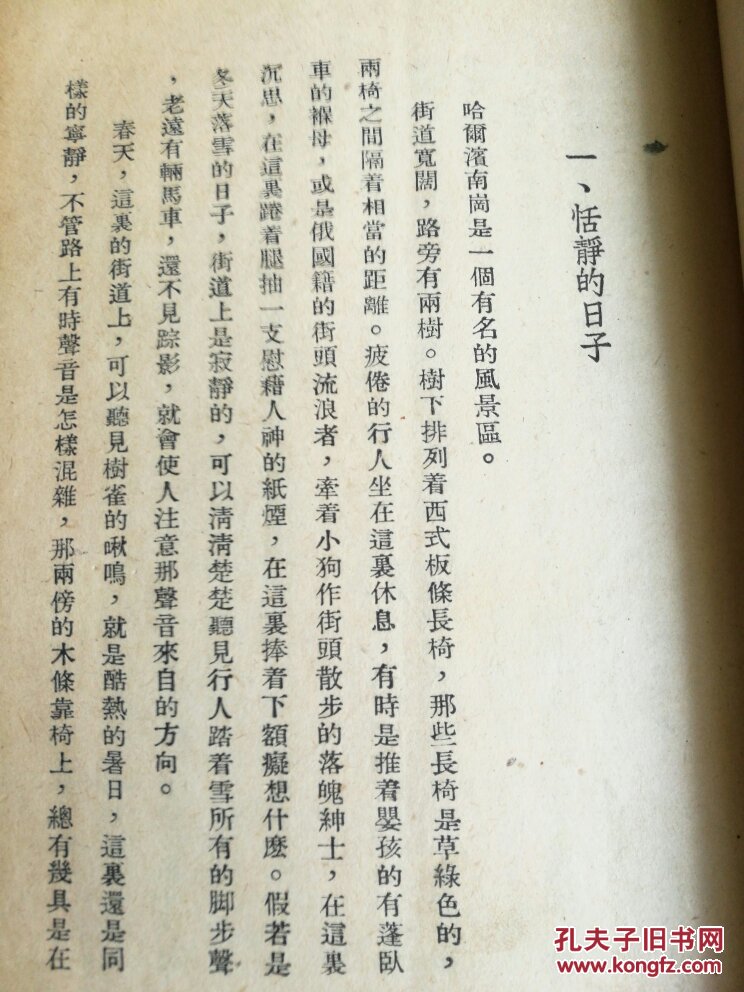 一、恬靜的日子
哈爾濱南崗是一個有名的風景區。
街道寬闊，路旁有兩樹。樹下排列着西式板條長椅，那些長椅是草綠色的，
兩椅之間隔着相當的距離。疲倦的行人坐在這裏休息，有時是推着嬰孩的有蓬臥
車的褓母，或是俄國籍的街頭流浪者，牽着小狗作街頭散步的落魄紳士，在這裏
沉思，在這裏蹺着腿抽一支慰藉人神的紙煙，在這裏捧着下額癡想什麽。假若是
冬天落雪的日子，街道上是寂靜的，可以淸淸楚楚聽見行人踏着雪所有的脚步聲
，老遠有輛馬車，還不見踪影，就會使人注意那聲音來自的方向。
春天，這裏的街道上，可以聽見樹雀的啾鳴，就是酷熱的暑日，這裏還是同
樣的寧靜，不管路上有時聲音是怎樣混雜，那兩傍的木條靠椅上，總有幾具是在
孔夫子旧书网
www.kongfz.com